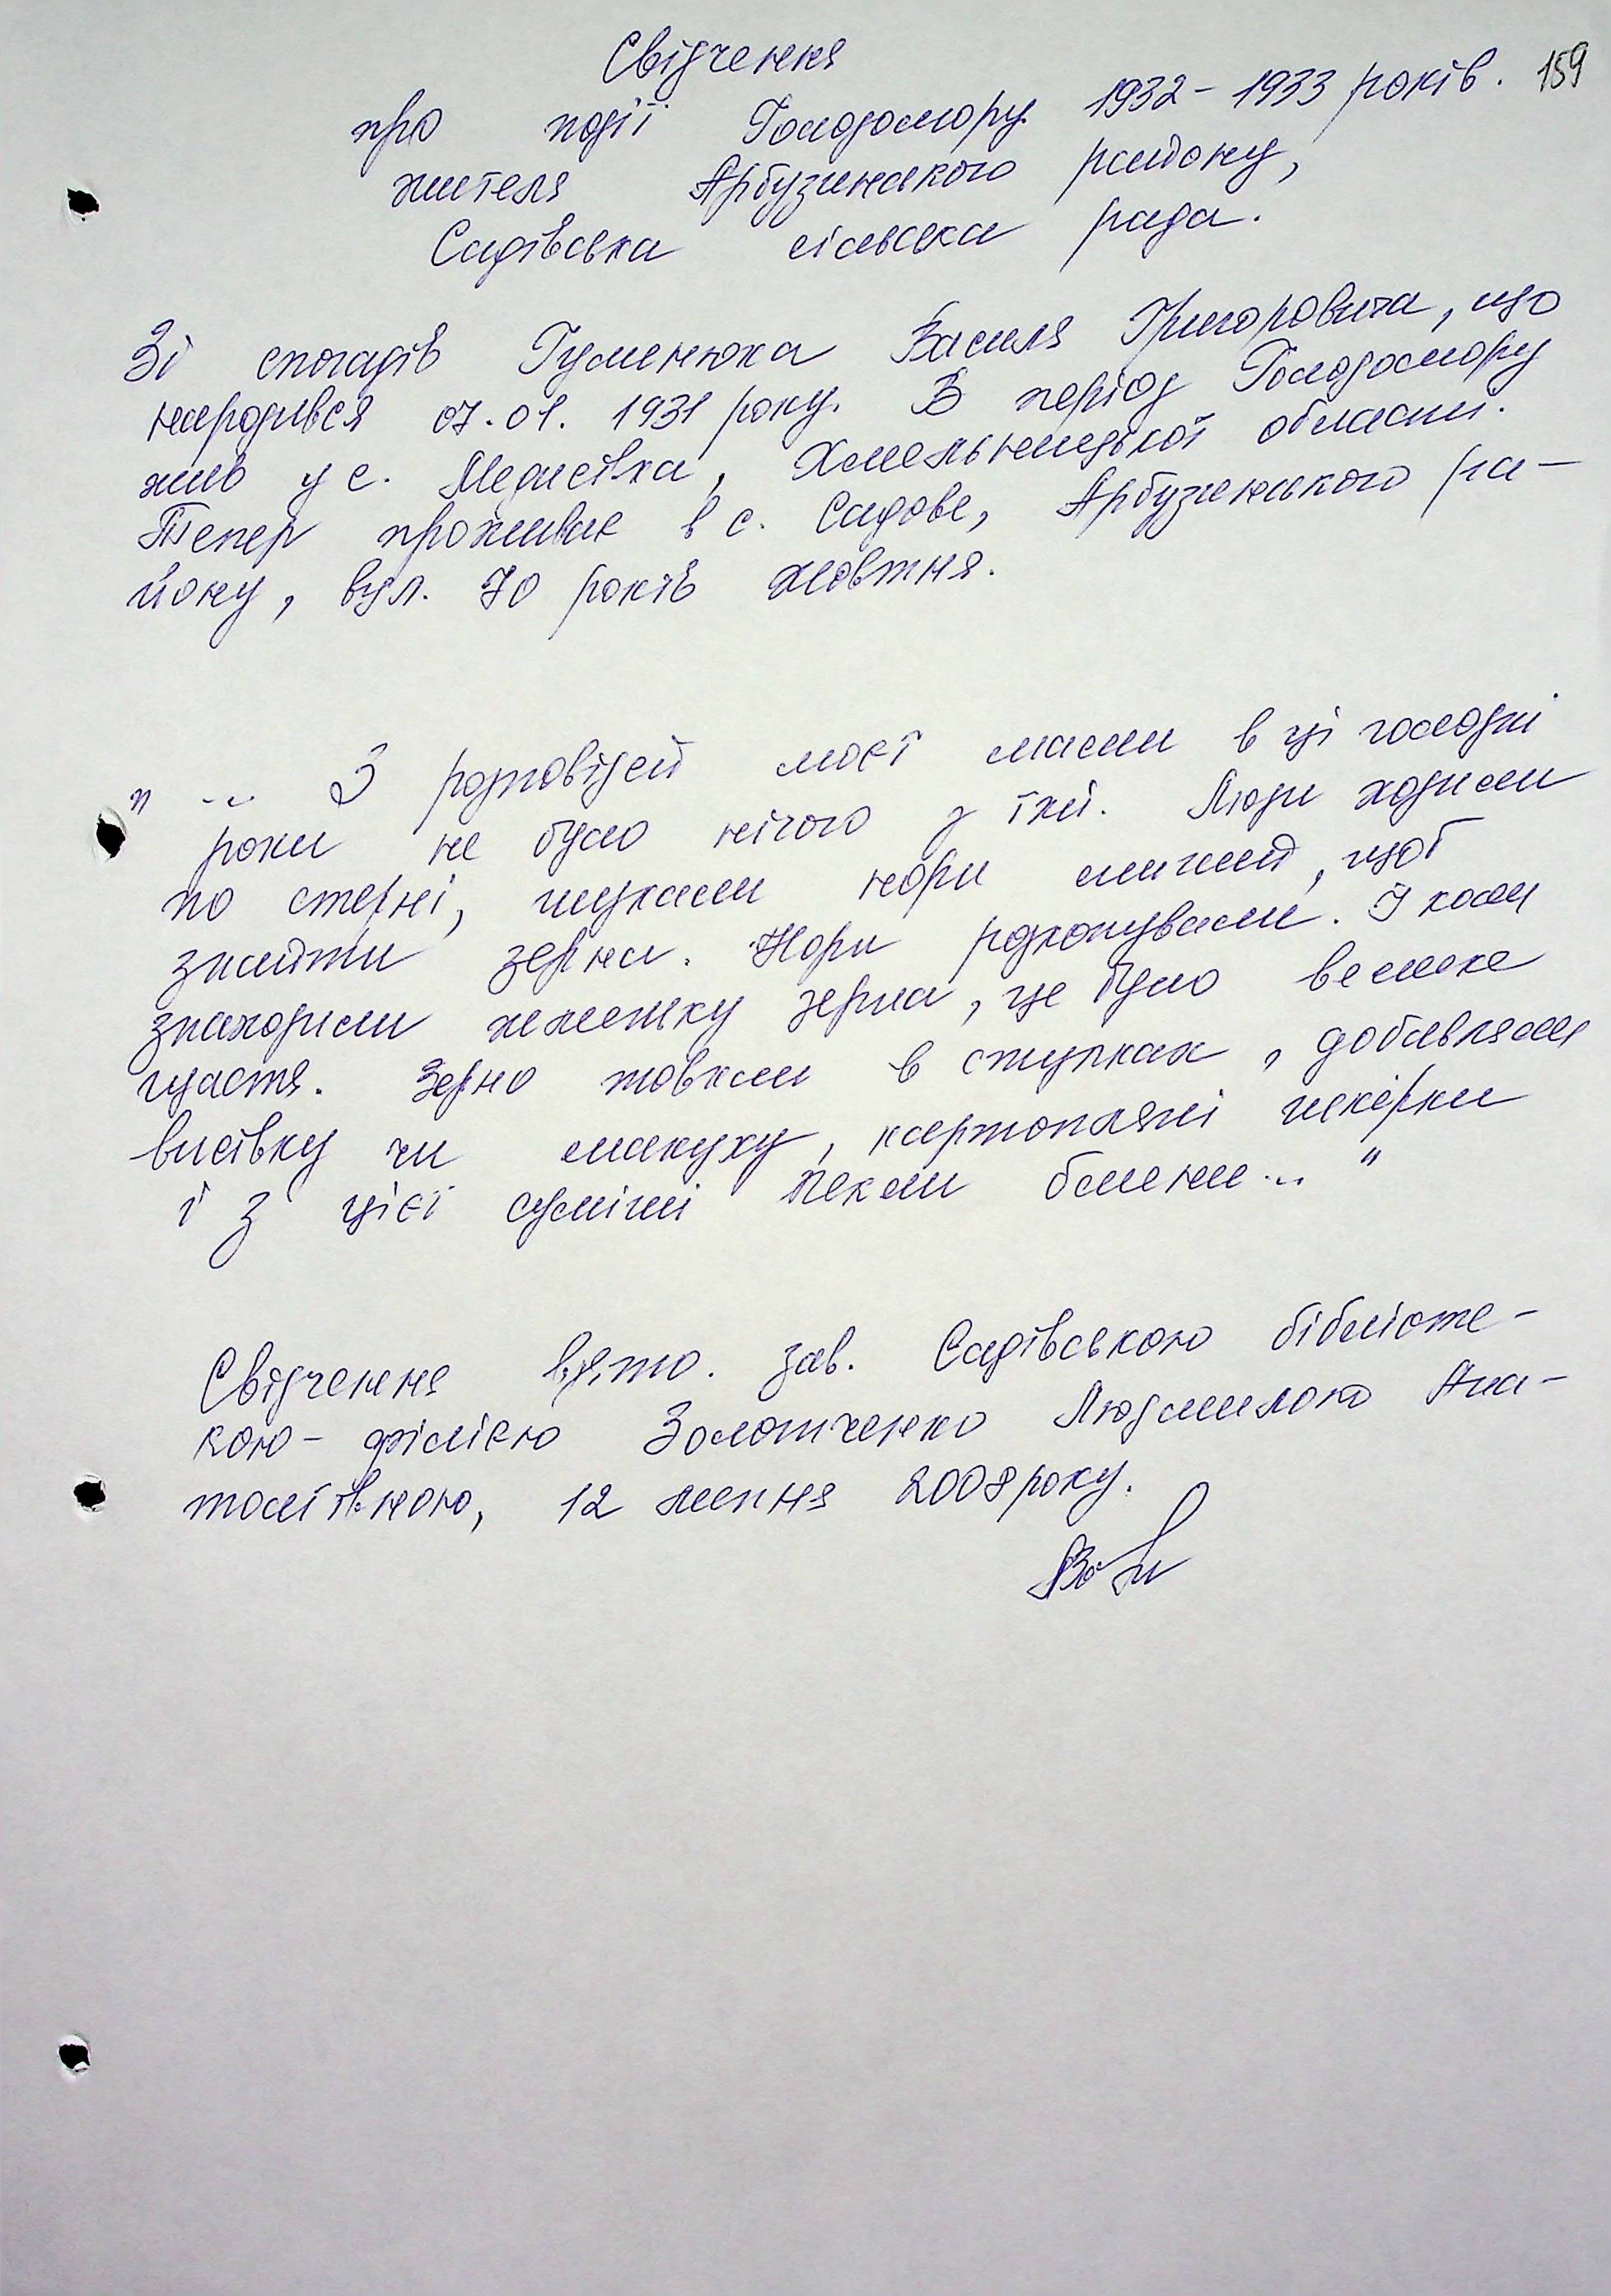 159
Свідчення
про події Голодомору 1932-1933 років.
жителя Арбузинського району,
Садівська сільська рада.
Зі спогадів Гуменюка Василя Григоровича, що
народився 07.01. 1931 року. В період Голодомору
жив у с. Медисівка, Хмельницької області.
Тепер проживає в с. Садове, Арбузинського ра-
йону, вул. 70 років Жовтня.
" ... З розповідей моєї мами в ці голодні
роки не було нічого з їжі. Люди ходили
по стерні, шукали нори мишей, щоб
знайти зерна. Нори розкопували. І коли
знаходили жменьку зерна, це було велике
щастя. Зерно товкли в ступках, добавляли
висівку чи макуху, картопляні шкірки
і з цієї суміші пекли блини... "
Свідчення взято. зав. Садівською бібліоте-
кою-філією Золотченко Людмилою Ана-
толіївною, 12 липня 2008 року.